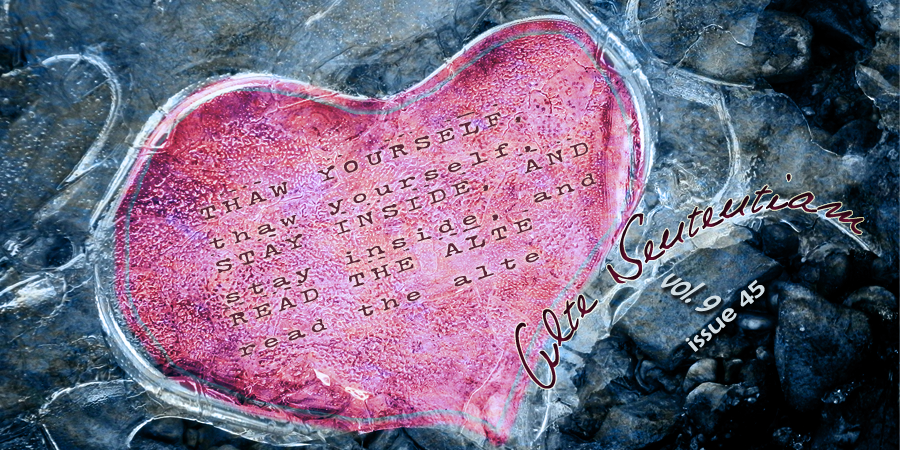 THAW YOURSELF.
thaw yourself.
STAY INSIDE, AND
stay inside, and
READ THE ALTE
read the alte
Alte Sententiam
vol. 9
issue 45